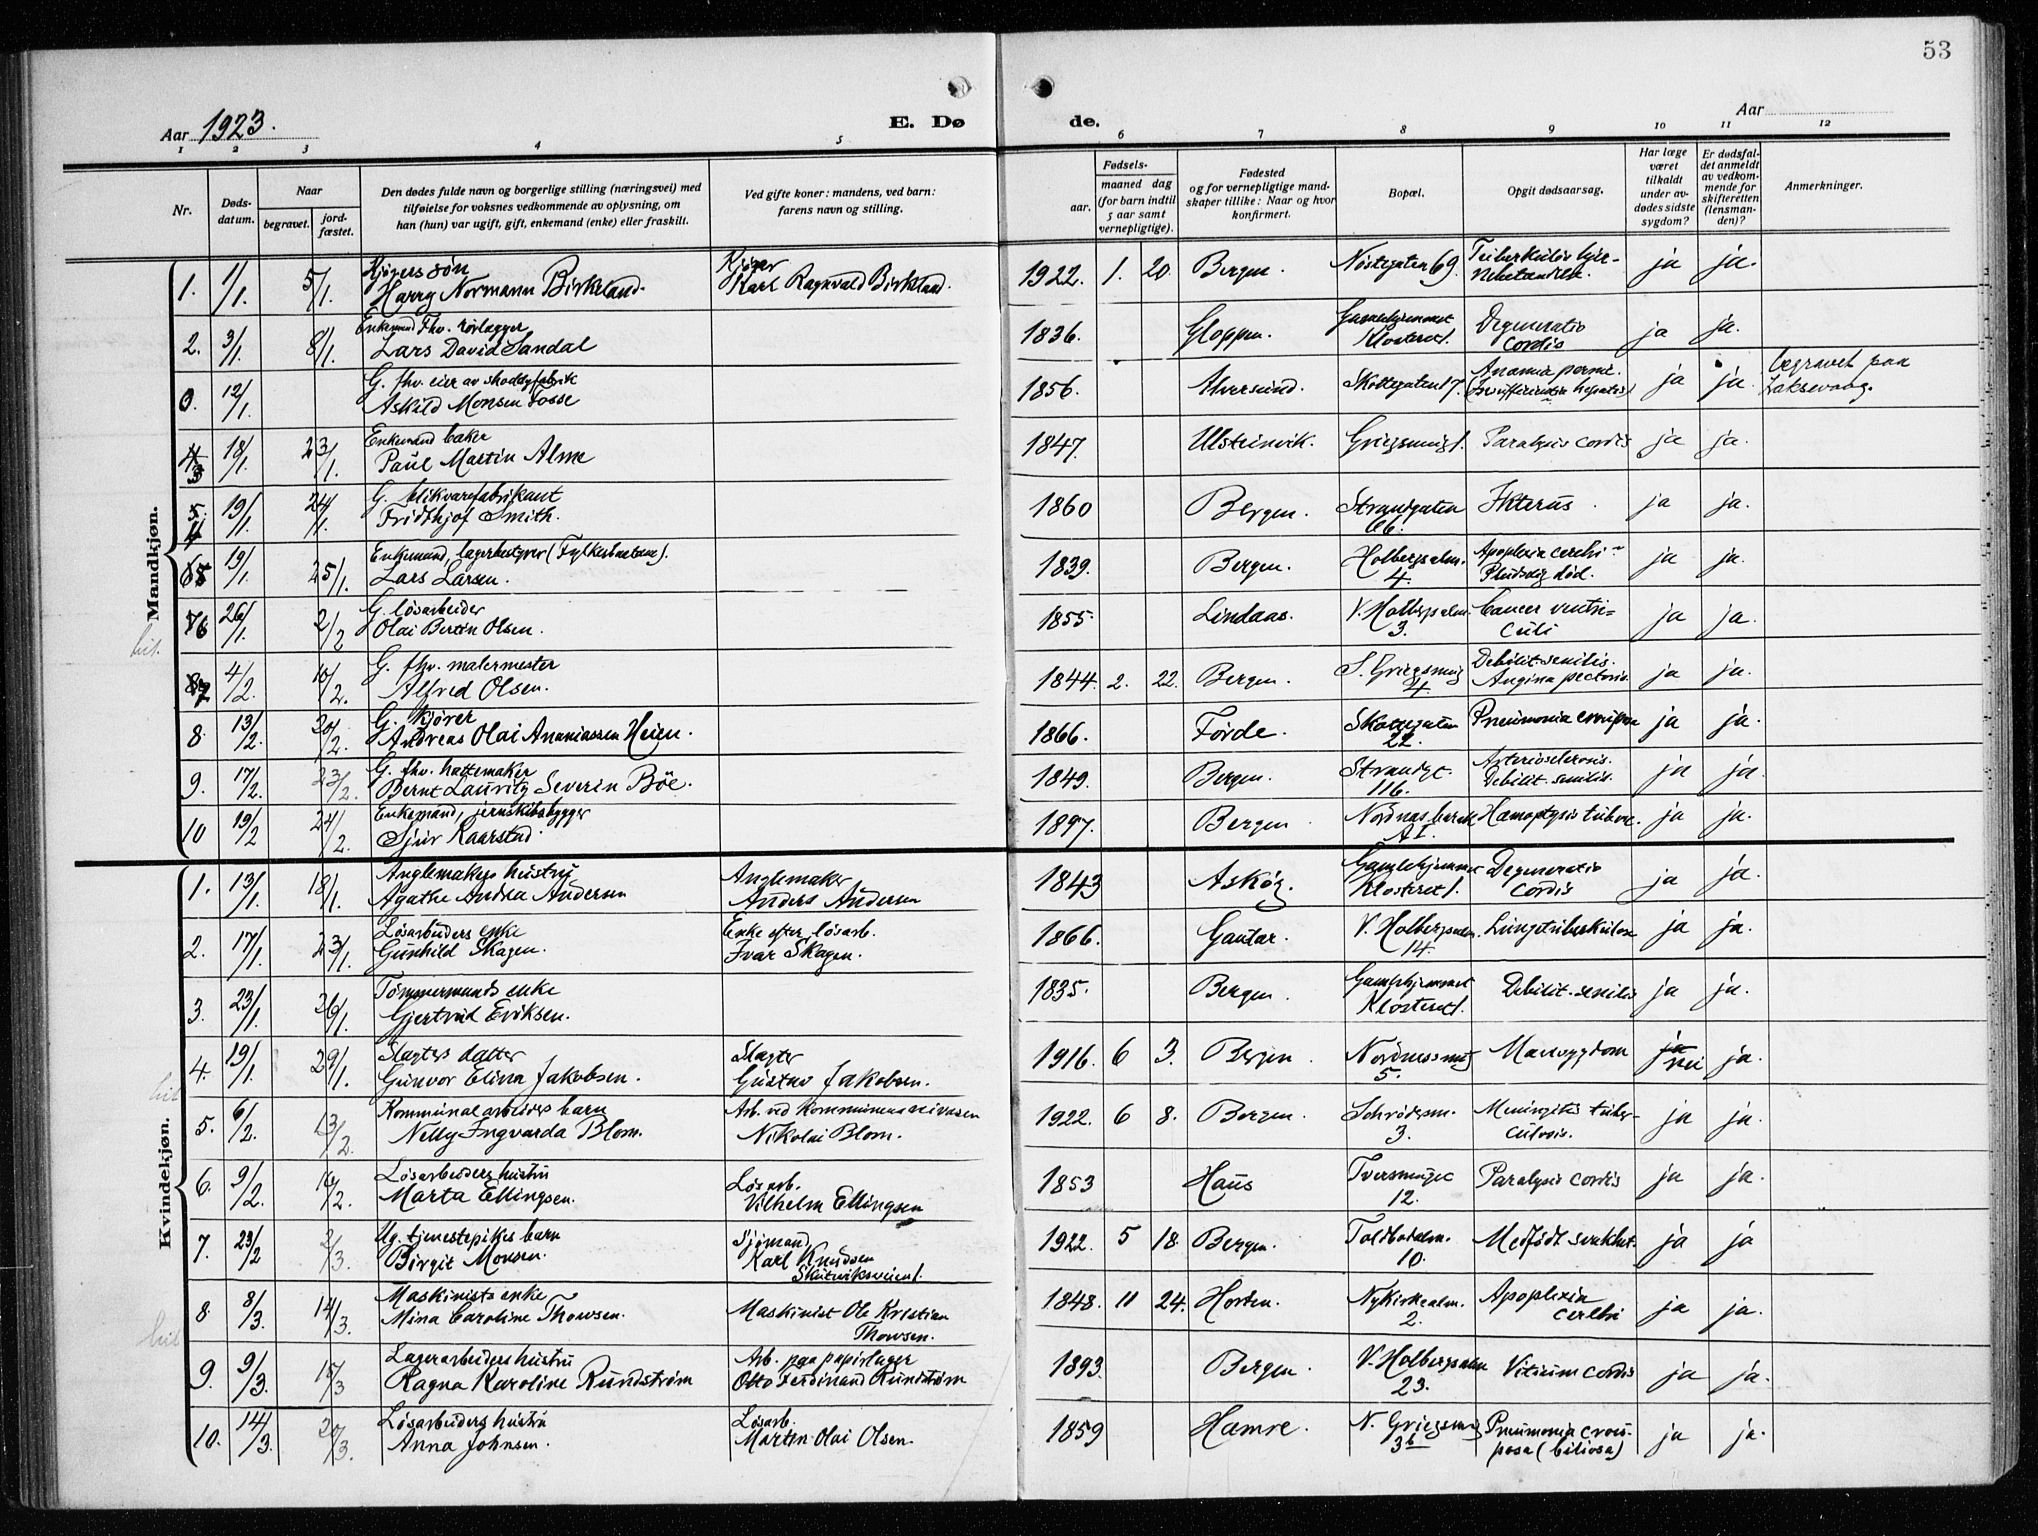 53
Aar 1923.
E. Dø de.
Aar
1 2 3 4 5 6 7 8 9 10 11 12
Nr.
Døds-
datum.
Naar
begravet.
jord-
fæstet.
Den dødes fulde navn og borgerlige stilling (næringsvei) med
tilføielse for voksnes vedkommende av oplysning, om
han (hun) var ugift, gift, enkemand (enke) eller fraskilt.
Ved gifte koner: mandens, ved barn:
farens navn og stilling.
Fødsels-
aar.
maaned dag
(for barn indtil
5 aar samt
vernepligtige).
Fødested
og for vernepligtige mand-
skaper tillike: Naar og hvor
konfirmert.
Bopæl.
Opgit dødsaarsag.
Har læge
været
tilkaldt
under av-
dødes sidste
sygdom?
Er dødsfal-
det anmeldt
av vedkom-
mende for
skifteretten
(lensman-
den)?
Anmerkninger.
Mandkjøn.
Kjørers søn Kjører
1. 1/1. 5/1. Harry Normann Birkeland. Karl Ragnvald Birkeland. 1922. 1. 20. Bergen. Nøstegaten 69. ja ja.
Enkemand Fhv. rørlægger
2. 3/1. 8/1. Lars David Sandal 1836. Gloppen. Gamlehjemmet Klosteret 1. Degeneratio cordis ja ja.
G. fhv. eier av shoddyfabrik
0. 12/1. Askild Monsen Fosse 1856. Alversund. Skottegaten 17. Anæmia pernic. (Insufficientia hepatis) ja ja. begravet paa Laksevaag.
Enkemand baker
3 18/1. 23/1. Paul Martin Alme 1847. Ulsteinvik. Griegsmug 1. Paralysis cordis ja ja.
G. blikvarefabrikant
4 19/1. 24/1. Fridthjof Smith. 1860 Bergen. Strandgaten 66. Ikterus. ja ja.
Enkemand, lagerbestyrer (Fylkesbaatane).
5 19/1. 25/1. Lars Larsen. 1839. Bergen. Holbergsalm. 4. Apoplexia cerebri - Pludselig død. ja ja.
G. løsarbeider
6 26/1. 2/2 Olai Bertin Olsen. 1855. Lindaas. V. Holbergsalm. 3. Cancer ventri= culi ja ja.
G. fhv. malermester
7 4/2. 10/2. Alfred Olsen. 1844. 2. 22. Bergen. S. Griegsmug 4 Debilit. senilis. Angina pectoris. ja ja.
G. kjører
8. 13/2. 20/2. Andreas Olai Ananiassen Heien. 1866. Førde. Skottegaten 22. Pneumonia crouposa ja ja.
G. fhv. hattemaker
9. 17/2. 23/2. Bernt Lauritz Severin Bøe. 1849. Bergen. Strandgt. 116. Arteriosclerosis. Debilit. senilis. ja ja.
Enkemand, jernskibsbygger
10 19/2 24/2. Sjur Kaarstad. 1897. Bergen Nordnes barak A I. Hæmoptysis tuberc. ja ja.
Kvindekjøn.
hustru
1. 13/1. 18/1. Agathe Andrea Andersen Anders Andersen 1843 Askøy. Gamlehjemmet Klosteret 1. Degeneratio cordis ja ja.
Løsarbeiders enke Enke efter løsarb.
2. 17/1. 23/1. Gunhild Skagen. Ivar Skagen. 1866. Gaular. V. Holbergsalm. 14. Lungetuberkulose ja ja.
Tømmermands enke
3. 23/1. 26/1. Gjertrud Eriksen. 1835. Bergen. Gamlehjemmet Klosteret 1. Debilit. senilis ja ja.
Slagters datter Slagter
4. 19/1. 29/1. Gunvor Elina Jakobsen. Gustav Jakobsen. 1916. 6 3. Bergen. Nordnesmug 5. Mavesygdom ja nei ja.
Kommunearbeiders barn Arb. ved kommunens
5. 6/2. 13/2. Nelly Ingvarda Blom. Nikolai Blom. 1922. 6 8. Bergen. Schrødersm. 3. Meningitis tuber- culosis. ja ja.
Løsarbeiders hustru Løsarb.
6. 9/2. 16/2. Marta Ellingsen. Vilhelm Ellingsen 1853 Haus Tversmuget 12. Paralysis cordis ja ja.
Ug. tjenestepikes barn Sjømand
7. 23/2 2/3. Birgit Monsen. Karl Knudsen Skuteviksveien 1. 1922. 5 18. Bergen. Toldbodalm. 10. Medfødt svakhet. ja ja
Maskinists enke
8 8/3. 14/3. Mina Caroline Thowsen. Maskinist Ole Kristian Thowsen. 1848. 11 24. Horten. Nykirkealm. 2. Apoplexia cerebri ja ja.
Lagerarbeiders hustru Arb. paa papirlager
9. 9/3. 15/3 Ragna Karoline Rundstrøm Otto Ferdinand Rundstrøm 1893. Bergen. V. Holbergsalm 23. Vitium cordis ja ja.
Løsarbeiders hustru Løsarb.
10. 14/3. 20/3. Anna Johnsen. Martin Olai Olsen. 1859 Hamre. N. Griegsmug 3b Pneumonia crou- posa (biliosa) ja ja.